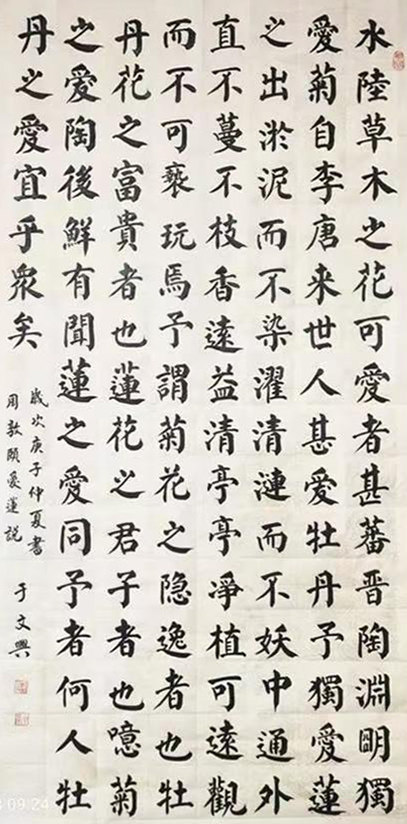 水陸草木之花可愛者甚蕃晋陶淵明獨
愛菊自李唐来世人甚愛牡丹予獨愛蓮
之出淤泥而不染濯清漣而不妖中通外
直不蔓不枝香遠益清亭亭净植可遠觀
而不可褻玩焉予謂菊花之隐逸者也牡
丹花之富貴者也蓮花之君子者也噫菊
之愛陶後鮮有聞蓮之愛同予者何人牡
丹之愛宜乎衆矣
歲次庚子仲夏書
周敦頤愛蓮説 于文興
09:24